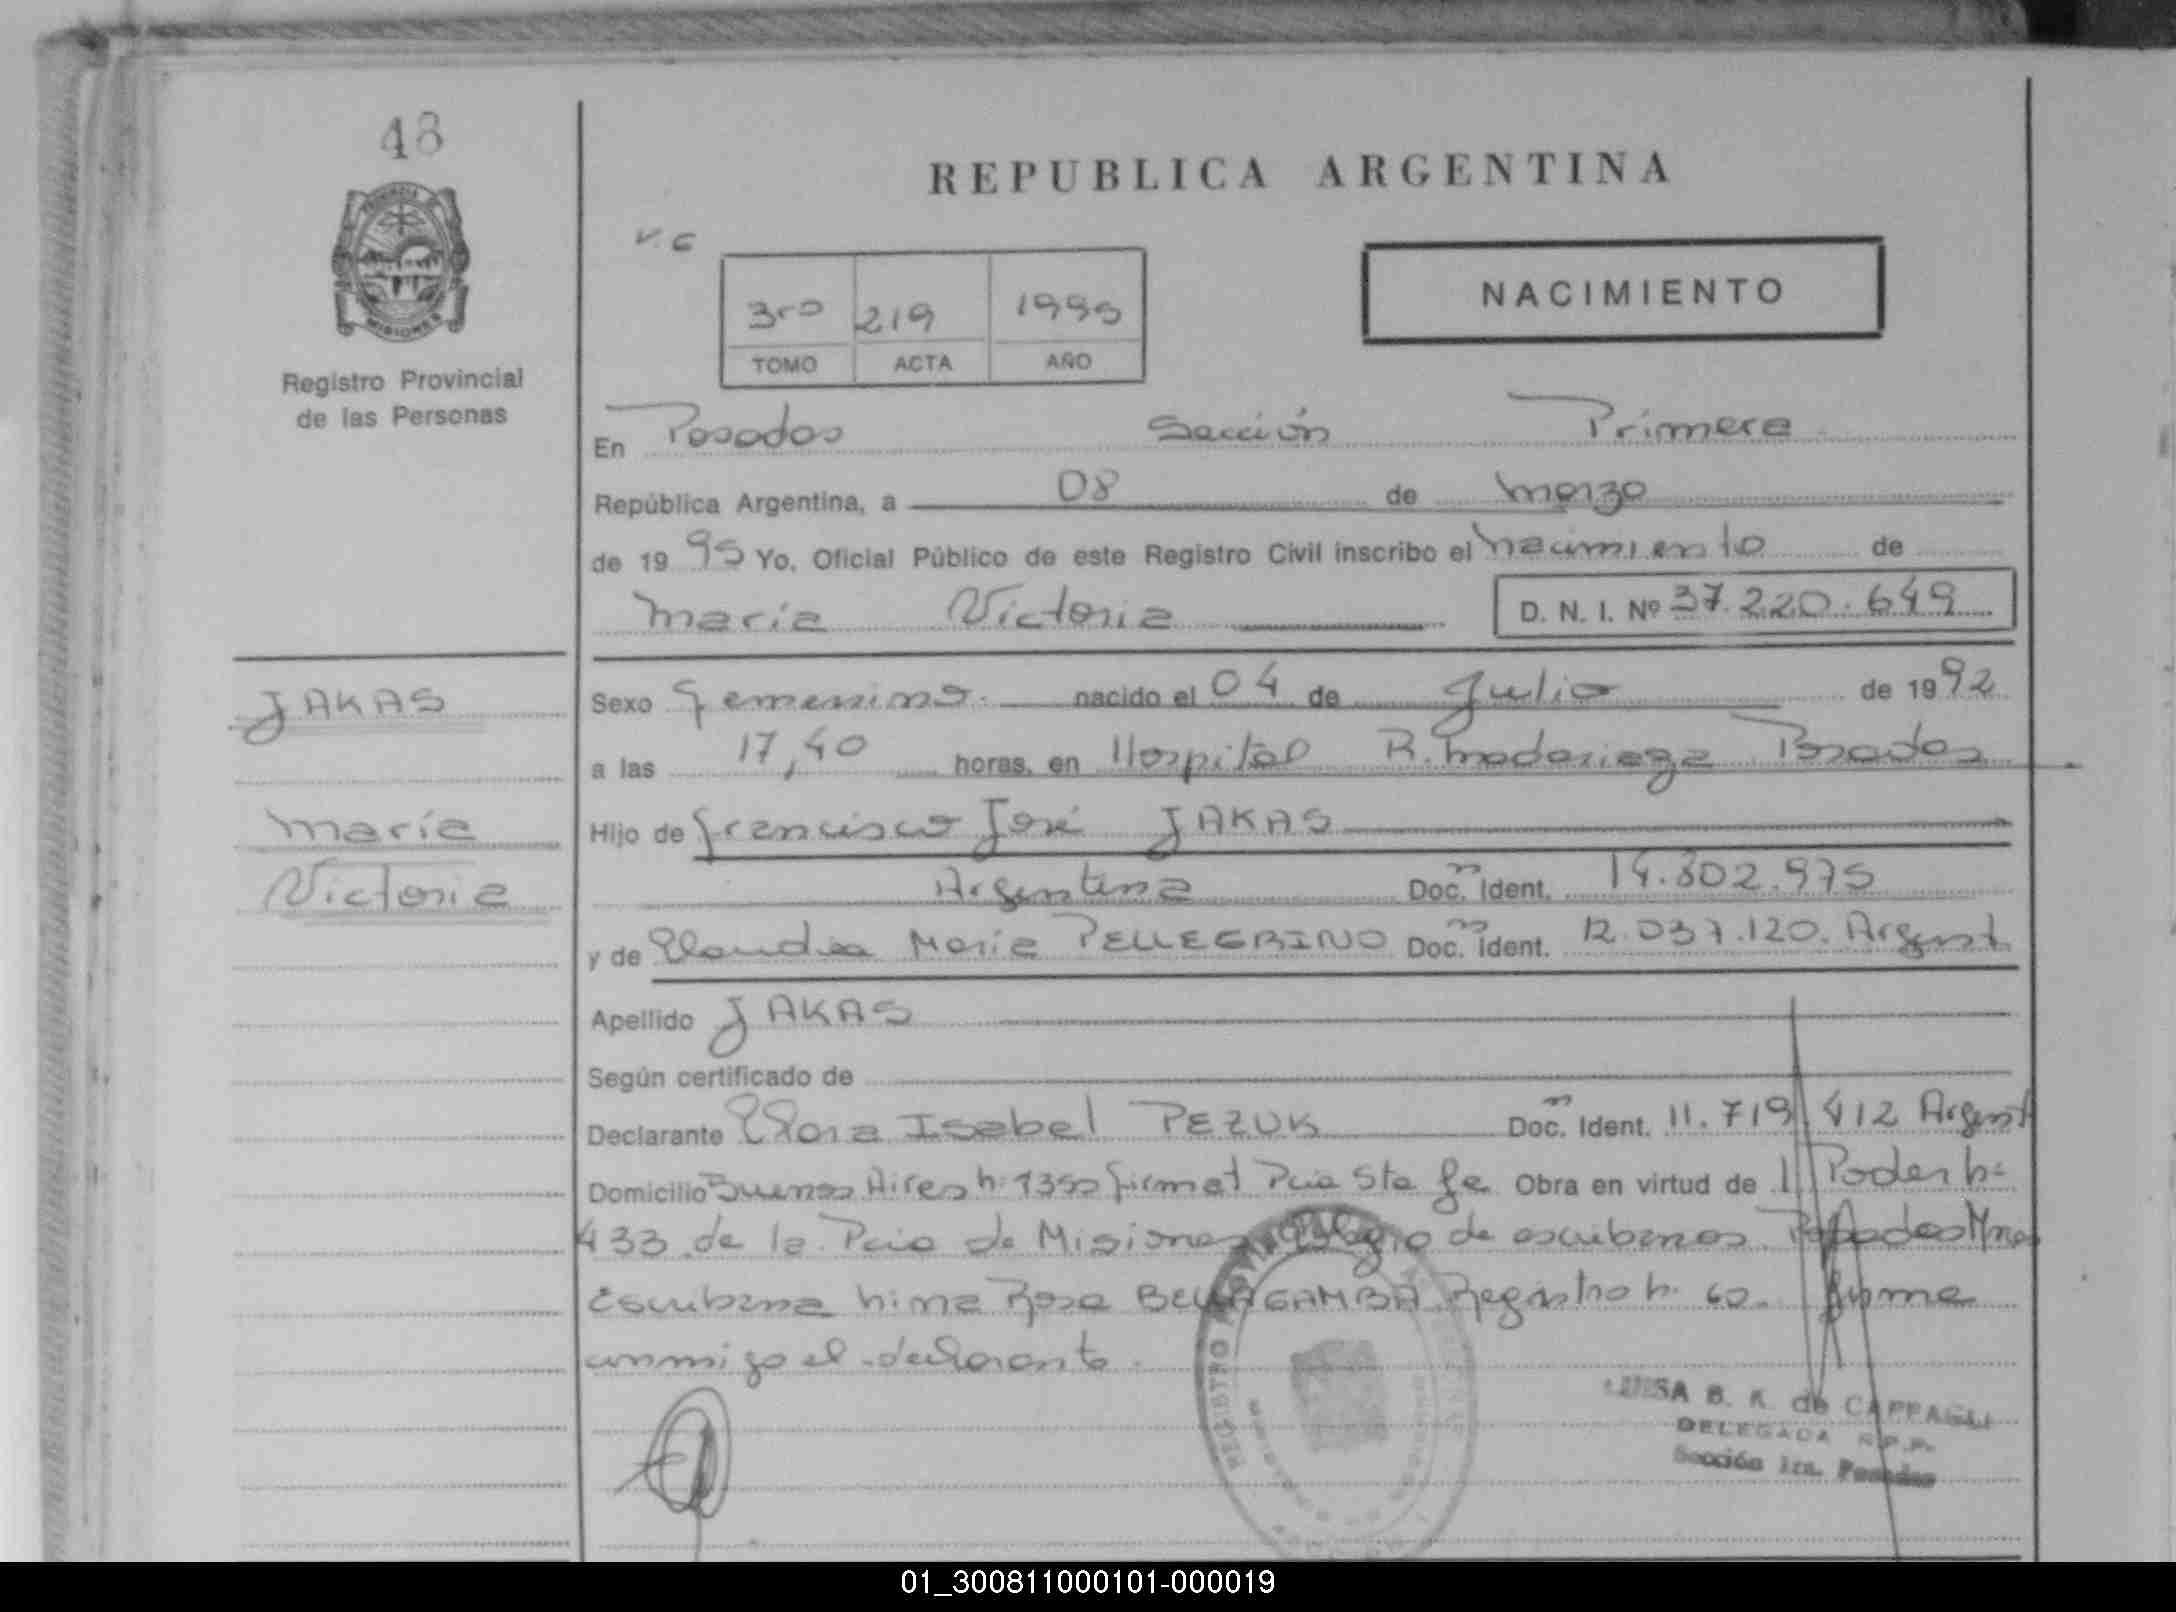 48
REPUBLICA ARGENTINA
V.C
3ro 219 1995
TOMO ACTA AÑO
NACIMIENTO
MISIONES
Registro Provincial
de las Personas
En Posadas Sección Primera
República Argentina, a 08 de marzo
de 19 95 Yo, Oficial Público de este Registro Civil inscribo el nacimiento de
María Victoria D. N. I. Nº 37.220.649
JAKAS
Sexo femenino. nacido el 04 de Julio de 19 92
a las 17,40 horas, en Hospital R. Madariaga Posadas
María
Hijo de Francisco José JAKAS
Victoria
Argentina Doc. Ident. 14.802.975
y de Claudia María PELLEGRINO Doc. Ident. 12.037.120. Argent
Apellido JAKAS
Según certificado de
Declarante Clara Isabel PEZUK Doc. Ident. 11.719.412 Argent
Domicilio Buenos Aires n: 1350 firmat Pcia Sta fe Obra en virtud de Poder n:
433 de la Pcia de Misiones Colegio de escribanos Posadas Mnes
Escribana Nima Rosa BELLAGAMBA Registro n: 60. firma
conmigo el declarante.
REGISTRO
LUISA B. K. de CAPPAGLI
DELEGADA R.P.P.
Sección 1ra. Posadas
01_300811000101-000019